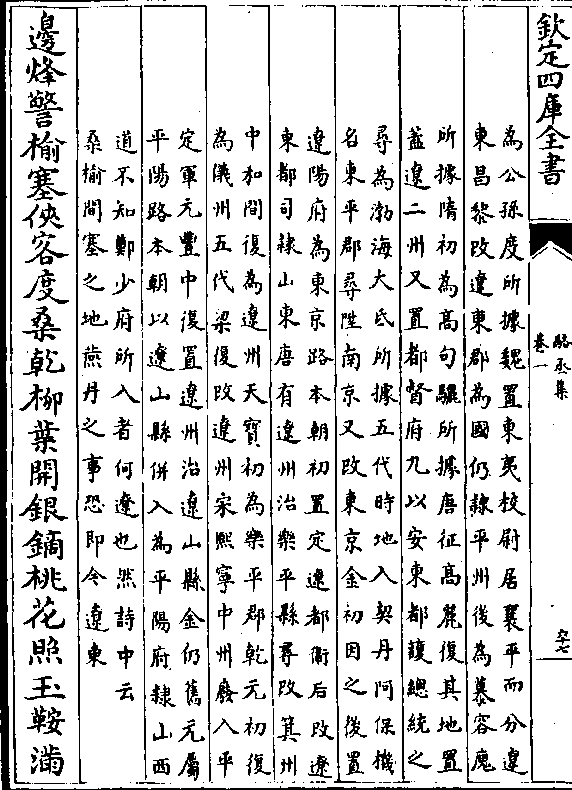 欽定四庫全書
駱丞集
卷一
為公孫度所據魏置東夷校尉居襄平而分遼
東昌黎改遼東郡為國仍隸平州後為慕容廆
所據隋初為高句驪所據唐征高麗復其地置
蓋遼二州又置都督府九以安東都護總統之
尋為渤海大氏所據五代時地入契丹阿保機
名東平郡尋陞南京又改東京金初因之後置
遼陽府為東京路本朝初置定遼都衛后改遼
東都司隸山東唐有遼州治樂平縣尋改箕州
中和間復為遼州天寶初為樂平郡乾元初復
為儀州五代梁復改遼州宋熙寧中州廢入平
定軍元豐中復置遼州治遼山縣金仍舊元屬
平陽路本朝以遼山縣併入為平陽府隸山西
道不知鄭少府所入者何遼也然詩中云
桑榆間塞之地燕丹之事恐即今遼東
邊烽警榆塞俠客度桑乾柳葉開銀鏑桃花照玉鞍滿